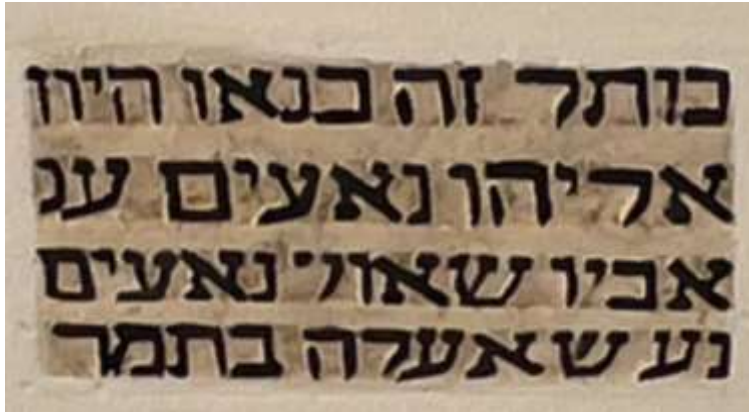 כותל זה בנאו
אליהו נאעים ענ
אביו שאול נאעים
נע שאעלה בתמר